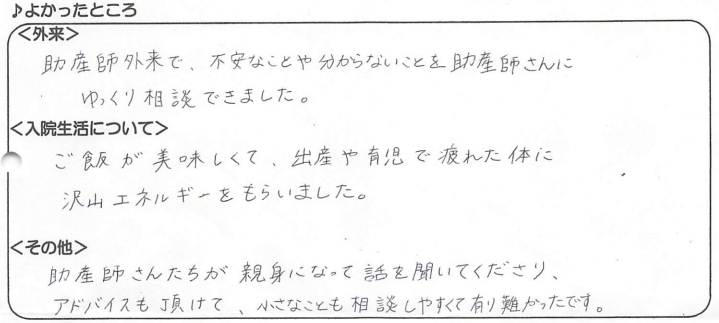 ♪よかったところ
＜外来＞
助産師外来で、不安なことや分からないことを助産師さんに
ゆっくり相談できました。
＜入院生活について＞
ご飯が美味しくて、出産や育児で疲れた体に
沢山エネルギーをもらいました。
＜その他＞
助産師さんたちが親身になって話を聞いてくださり、
アドバイスも頂けて、小さなことも相談しやすくて有り難かったです。